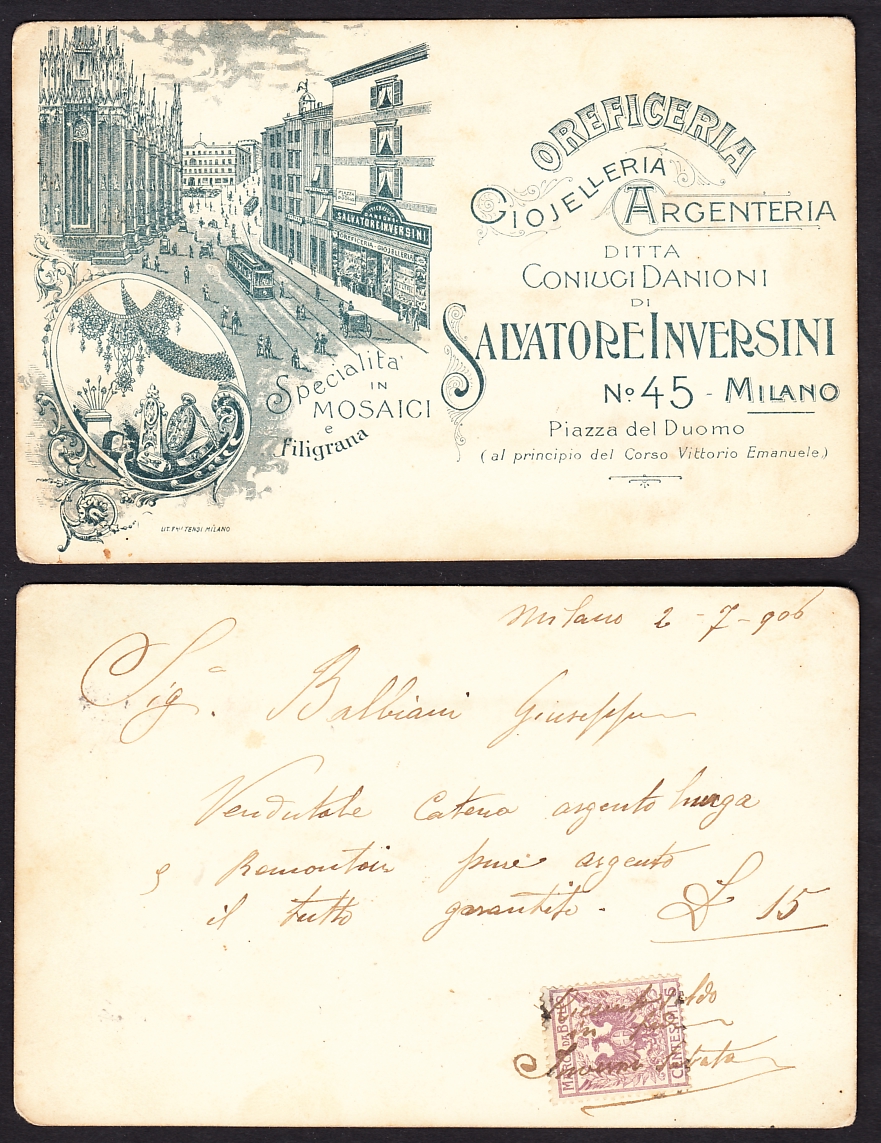 OREFICERIA
GIOJELLERIA
ARGENTERIA
DITTA
CONIUGI DANIONI
DI
SALVATORE INVERSINI
No 45 - MILANO
Piazza del Duomo
(al principio del Corso Vittorio Emanuele.)
SALVATORE INVERSINI
OREFICERIA - GIOJELLERIA
Specialità
IN
MOSAICI
e
filigrana
LIT. F.lli TENSI. MILANO
Milano 2 - 7 - 906
Sig. Balbiani Giuseppe
Vendutole Catena argento lunga
e Remontoir pure argento
il tutto garantito. £ 15
MARCA DA BOLLO
CENTESIMI 5
Saldo